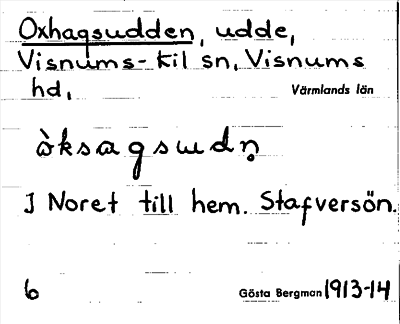 Oxhagsudden, udde,
Visnums-Kil sn, Visnums
hd,
Värmlands län
òksagsudn̥
I Noret till hem. Stafversön.
6
Gösta Bergman 1913-14